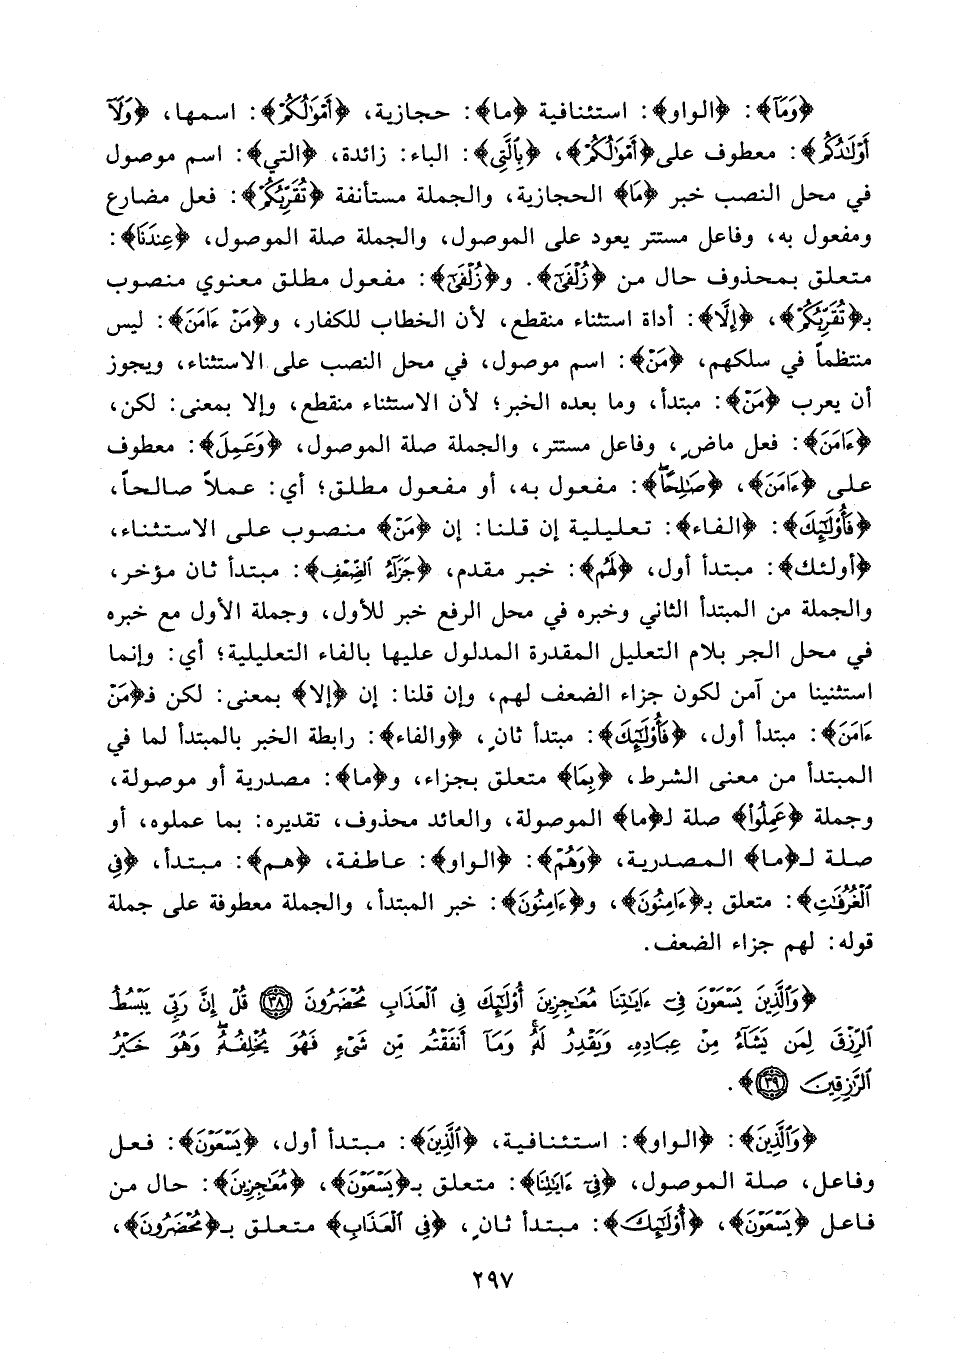 ﴿وَمَآ﴾: ﴿الواو﴾: استئنافية ﴿ما﴾: حجازية، ﴿أَمْوَٰلُكُمْ﴾: اسمها، ﴿وَلَآ
أَوْلَٰدُكُم﴾: معطوف على ﴿أَمْوَٰلُكُمْ﴾، ﴿بِٱلَّتِي﴾: الباء: زائدة، ﴿التي﴾: اسم موصول
في محل النصب خبر ﴿مَا﴾ الحجازية، والجملة مستأنفة ﴿تُقَرِّبُكُمْ﴾: فعل مضارع
ومفعول به، وفاعل مستتر يعود على الموصول، والجملة صلة الموصول، ﴿عِندَنَا﴾:
متعلق بمحذوف حال من ﴿زُلْفَىٰٓ﴾. و﴿زُلْفَىٰٓ﴾: مفعول مطلق معنوي منصوب
بـ﴿تُقَرِّبُكُمْ﴾، ﴿إِلَّا﴾: أداة استثناء منقطع، لأن الخطاب للكفار، و﴿مَنْ ءَامَنَ﴾: ليس
منتظماً في سلكهم، ﴿مَنْ﴾: اسم موصول، في محل النصب على الاستثناء، ويجوز
أن يعرب ﴿مَنْ﴾: مبتدأ، وما بعده الخبر؛ لأن الاستثناء منقطع، وإلا بمعنى: لكن،
﴿ءَامَنَ﴾: فعل ماضٍ، وفاعل مستتر، والجملة صلة الموصول، ﴿وَعَمِلَ﴾: معطوف
على ﴿ءَامَنَ﴾، ﴿صَٰلِحًا﴾: مفعول به، أو مفعول مطلق؛ أي: عملاً صالحاً،
﴿فَأُو۟لَٰٓئِكَ﴾: ﴿الفاء﴾: تعليلية إن قلنا: إن ﴿مَنْ﴾ منصوب على الاستثناء،
﴿أولئك﴾: مبتدأ أول، ﴿لَهُمْ﴾: خبر مقدم، ﴿جَزَآءُ ٱلضِّعْفِ﴾: مبتدأ ثان مؤخر،
والجملة من المبتدأ الثاني وخبره في محل الرفع خبر للأول، وجملة الأول مع خبره
في محل الجر بلام التعليل المقدرة المدلول عليها بالفاء التعليلية؛ أي: وإنما
استثنينا من آمن لكون جزاء الضعف لهم، وإن قلنا: إن ﴿إلا﴾ بمعنى: لكن فـ﴿مَنْ
ءَامَنَ﴾: مبتدأ أول، ﴿فَأُو۟لَٰٓئِكَ﴾: مبتدأ ثانٍ، ﴿والفاء﴾: رابطة الخبر بالمبتدأ لما في
المبتدأ من معنى الشرط، ﴿بِمَا﴾ متعلق بجزاء، و﴿ما﴾: مصدرية أو موصولة،
وجملة ﴿عَمِلُوا۟﴾ صلة لـ﴿ما﴾ الموصولة، والعائد محذوف، تقديره: بما عملوه، أو
صلة لـ﴿ما﴾ المصدرية، ﴿وَهُمْ﴾: ﴿الواو﴾: عاطفة، ﴿هم﴾: مبتدأ، ﴿فِي
ٱلْغُرُفَٰتِ﴾: متعلق بـ﴿ءَامِنُونَ﴾، و﴿ءَامِنُونَ﴾: خبر المبتدأ، والجملة معطوفة على جملة
قوله: لهم جزاء الضعف.
﴿وَٱلَّذِينَ يَسْعَوْنَ فِىٓ ءَايَٰتِنَا مُعَٰجِزِينَ أُو۟لَٰٓئِكَ فِى ٱلْعَذَابِ مُحْضَرُونَ ٣٨ قُلْ إِنَّ رَبِّى يَبْسُطُ
ٱلرِّزْقَ لِمَن يَشَآءُ مِنْ عِبَادِهِۦ وَيَقْدِرُ لَهُۥ وَمَآ أَنفَقْتُم مِّن شَىْءٍ فَهُوَ يُخْلِفُهُۥ وَهُوَ خَيْرُ
ٱلرَّٰزِقِينَ ٣٩﴾.
﴿وَٱلَّذِينَ﴾: ﴿الواو﴾: استئنافية، ﴿ٱلَّذِينَ﴾: مبتدأ أول، ﴿يَسْعَوْنَ﴾: فعل
وفاعل، صلة الموصول، ﴿فِىٓ ءَايَٰتِنَا﴾: متعلق بـ﴿يَسْعَوْنَ﴾، ﴿مُعَٰجِزِينَ﴾: حال من
فاعل ﴿يَسْعَوْنَ﴾، ﴿أُو۟لَٰٓئِكَ﴾: مبتدأ ثانٍ، ﴿فِى ٱلْعَذَابِ﴾ متعلق بـ﴿مُحْضَرُونَ﴾،
٢٩٧